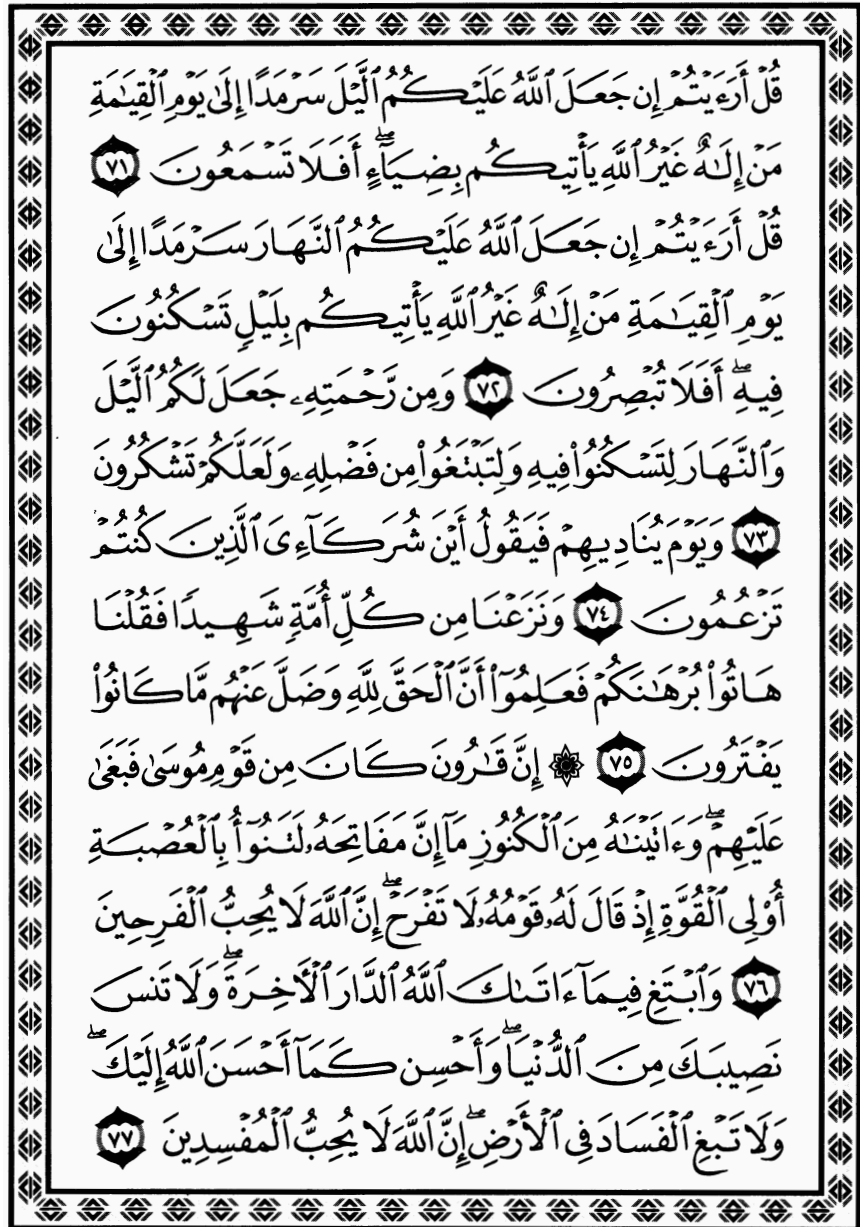 قُلْ أَرَءَيْتُمْ إِن جَعَلَ ٱللَّهُ عَلَيْكُمُ ٱلَّيْلَ سَرْمَدًا إِلَىٰ يَوْمِ ٱلْقِيَٰمَةِ
مَنْ إِلَٰهٌ غَيْرُ ٱللَّهِ يَأْتِيكُم بِضِيَآءٍ ۖ أَفَلَا تَسْمَعُونَ ٧١
قُلْ أَرَءَيْتُمْ إِن جَعَلَ ٱللَّهُ عَلَيْكُمُ ٱلنَّهَارَ سَرْمَدًا إِلَىٰ
يَوْمِ ٱلْقِيَٰمَةِ مَنْ إِلَٰهٌ غَيْرُ ٱللَّهِ يَأْتِيكُم بِلَيْلٍ تَسْكُنُونَ
فِيهِ ۖ أَفَلَا تُبْصِرُونَ ٧٢ وَمِن رَّحْمَتِهِۦ جَعَلَ لَكُمُ ٱلَّيْلَ
وَٱلنَّهَارَ لِتَسْكُنُوا۟ فِيهِ وَلِتَبْتَغُوا۟ مِن فَضْلِهِۦ وَلَعَلَّكُمْ تَشْكُرُونَ
٧٣ وَيَوْمَ يُنَادِيهِمْ فَيَقُولُ أَيْنَ شُرَكَآءِىَ ٱلَّذِينَ كُنتُمْ
تَزْعُمُونَ ٧٤ وَنَزَعْنَا مِن كُلِّ أُمَّةٍ شَهِيدًا فَقُلْنَا
هَاتُوا۟ بُرْهَٰنَكُمْ فَعَلِمُوٓا۟ أَنَّ ٱلْحَقَّ لِلَّهِ وَضَلَّ عَنْهُم مَّا كَانُوا۟
يَفْتَرُونَ ٧٥ ۞ إِنَّ قَٰرُونَ كَانَ مِن قَوْمِ مُوسَىٰ فَبَغَىٰ
عَلَيْهِمْ ۖ وَءَاتَيْنَٰهُ مِنَ ٱلْكُنُوزِ مَآ إِنَّ مَفَاتِحَهُۥ لَتَنُوٓأُ بِٱلْعُصْبَةِ
أُو۟لِى ٱلْقُوَّةِ إِذْ قَالَ لَهُۥ قَوْمُهُۥ لَا تَفْرَحْ ۖ إِنَّ ٱللَّهَ لَا يُحِبُّ ٱلْفَرِحِينَ
٧٦ وَٱبْتَغِ فِيمَآ ءَاتَىٰكَ ٱللَّهُ ٱلدَّارَ ٱلْءَاخِرَةَ ۖ وَلَا تَنسَ
نَصِيبَكَ مِنَ ٱلدُّنْيَا ۖ وَأَحْسِن كَمَآ أَحْسَنَ ٱللَّهُ إِلَيْكَ ۖ
وَلَا تَبْغِ ٱلْفَسَادَ فِى ٱلْأَرْضِ ۖ إِنَّ ٱللَّهَ لَا يُحِبُّ ٱلْمُفْسِدِينَ ٧٧